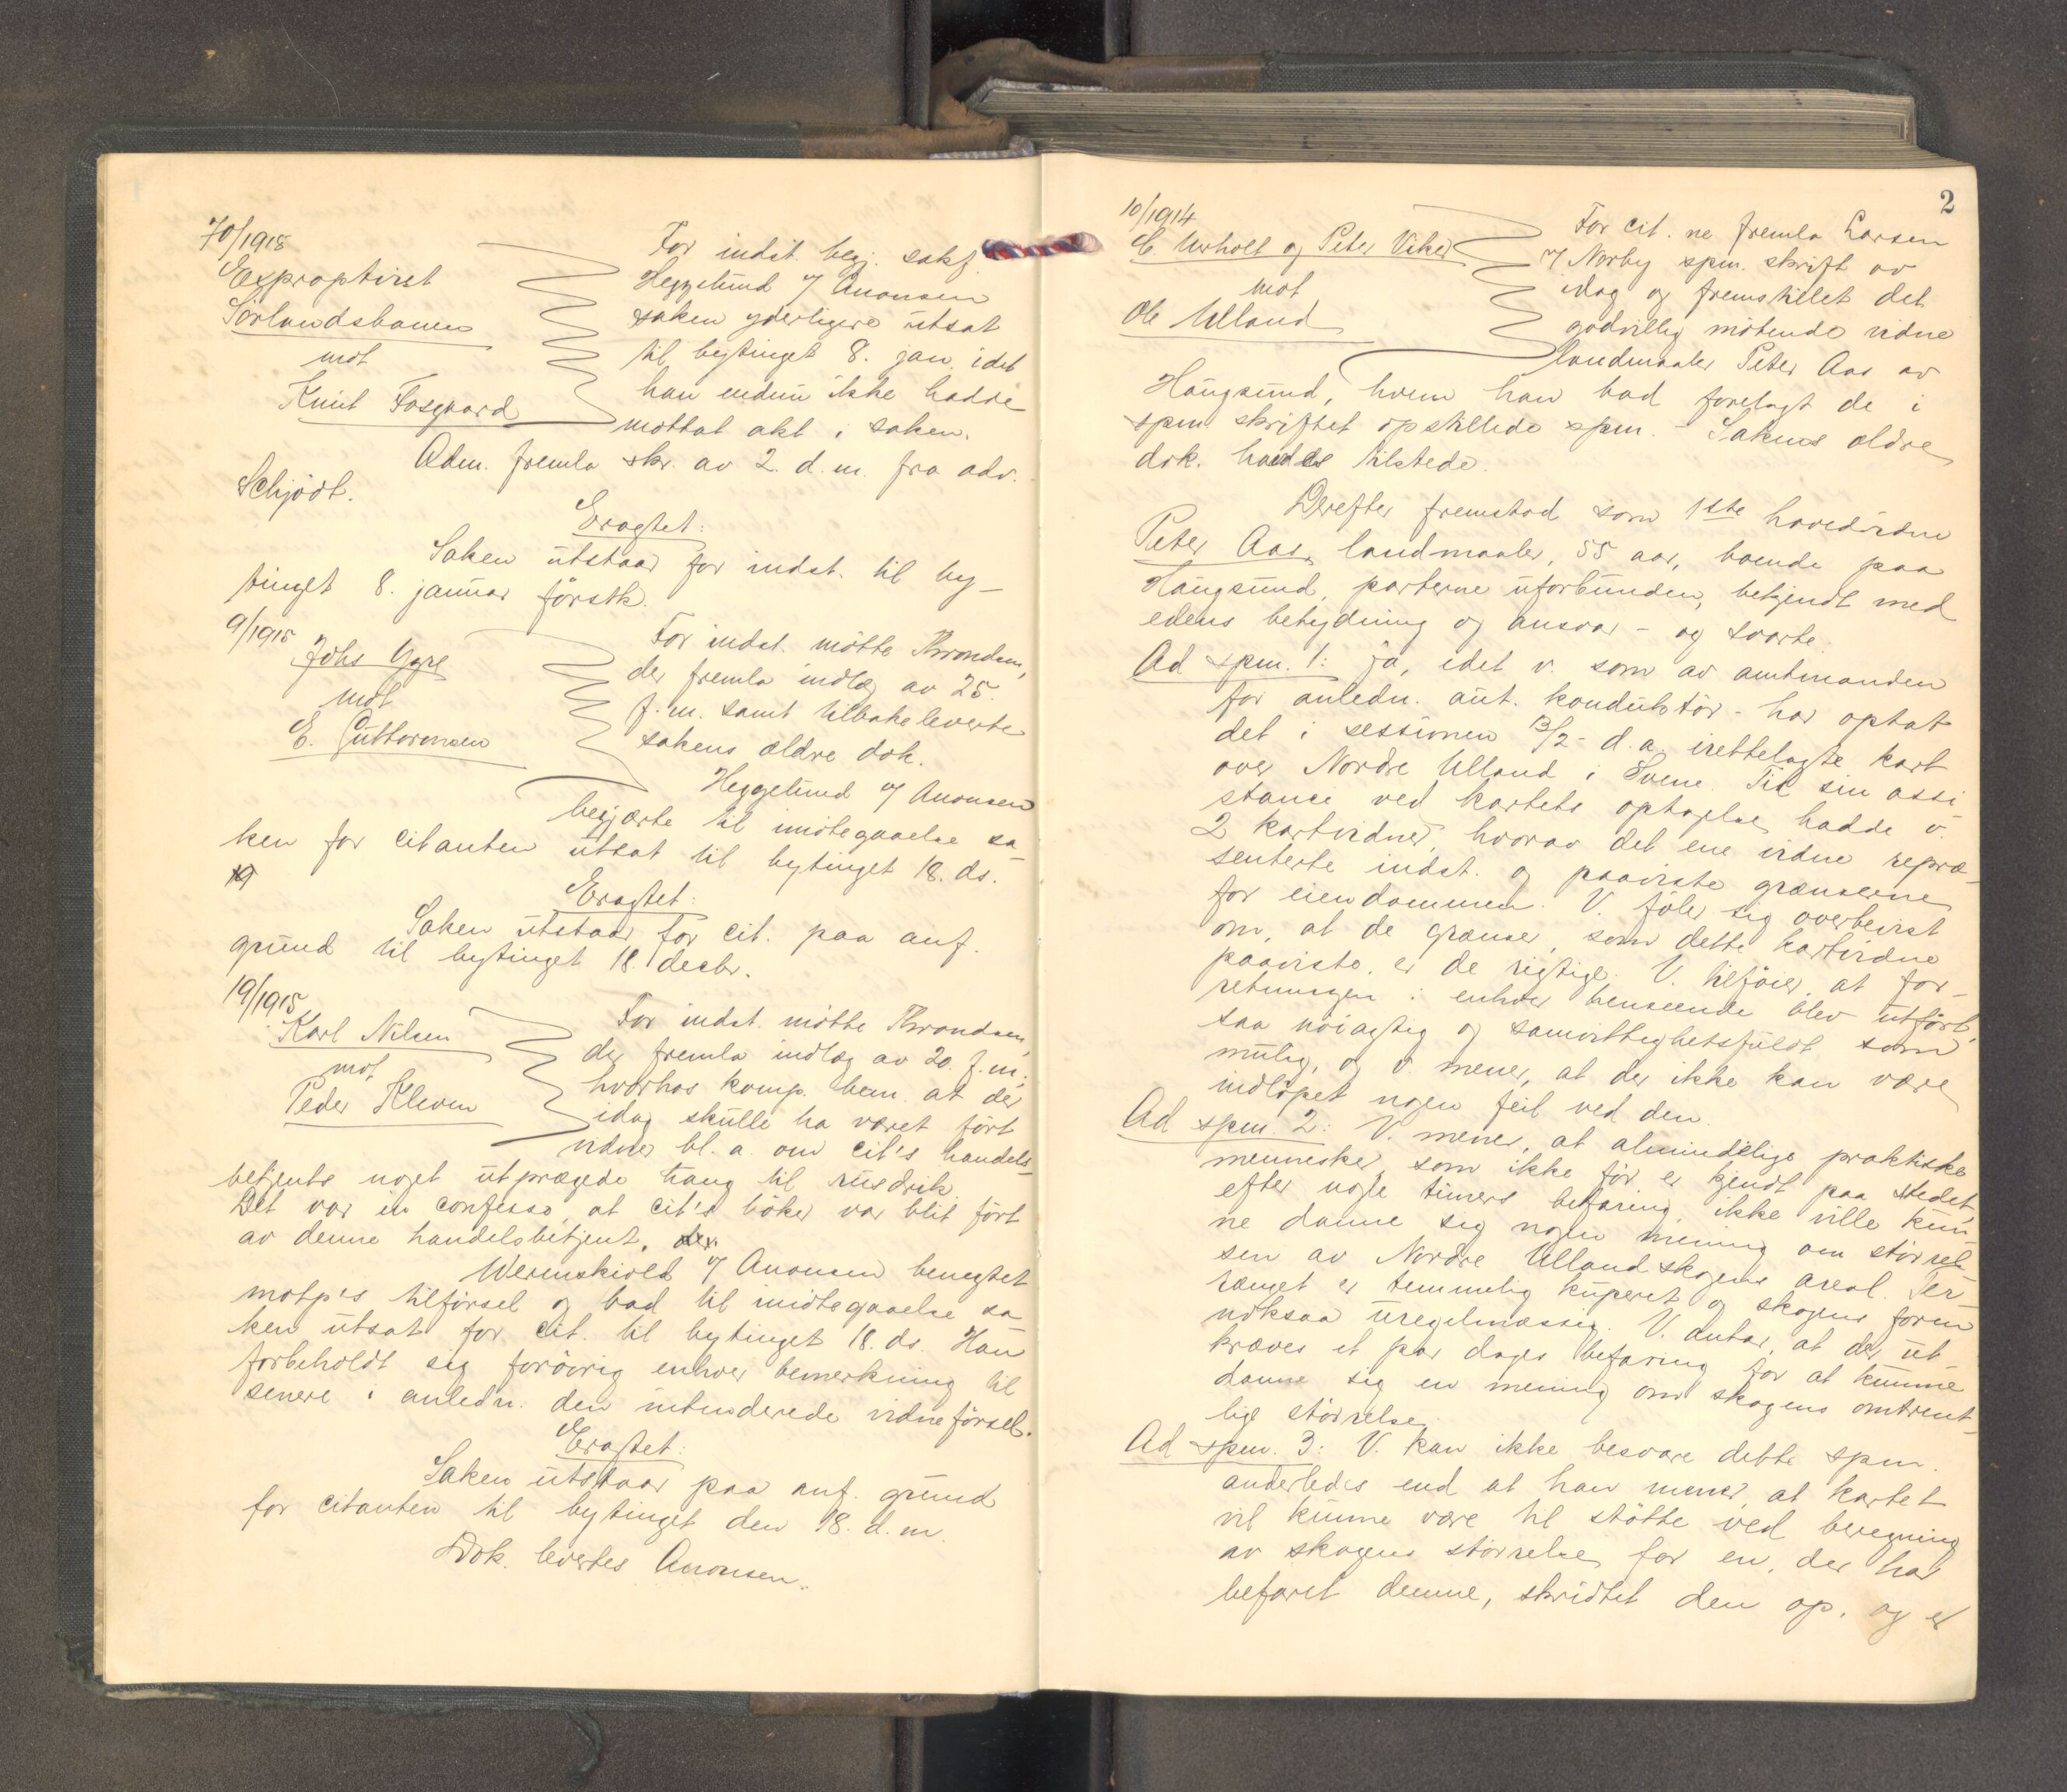 70/1918
Expropriert
Sörlandsbanen
mot
Knut Fosgaard
For indst. begj. sakf.
Heggelund v/ Aronsen
saken yderligere utsat
til bytinget 8. jan. idet
han endnu ikke hadde
mottat akt i saken.
Adm. fremla skr. av 2. d.m. fra adv.
Schjödt.
Eragtet:
Saken utstaar for indst. til by-
tinget 8. januar förstk.
9/1915
Johs Ygre
mot
E. Guttormsen
For indst. mötte Throndsen,
der fremla indlæg av 25.
f.m. samt tilbakeleverte
sakens ældre dok.
Heggelund v/ Aronsen
begjærte til imötegaaelse sa-
ken for citanten utsat til bytinget 18. ds.
Eragtet:
Saken utstaar for cit. paa anf.
grund til bytinget 18. decbr.
19/1915
Karl Nilsen
mot
Peder Kleven
For indst. mötte Throndsen,
der fremla indlæg av 20. f.m.,
hvorhos komp. bem. at der
idag skulle ha været fört
vidner bl. a. om cit's handels-
betjents noget utprægede trang til rusdrik.
Det var in confesso, at cit's böker var blit fört
av denne handelsbetjent.
Werenskiold v/ Aronsen benegtet
motp's tilförsel og bad til imötegaaelse sa
ken utsat for cit. til bytinget 18. ds. Han
forbeholdt sig forövrig enhver bemerkning til
senere i anledn. den intenderede vidneförsel.
Eragtet:
Saken utstaar paa anf. grund
for citanten til bytinget den 18. d.m.
Dok. levertes Aronsen.
2
10/1914
E. Urholt og Peter Viker
mot
Ole Ulland
For cit.ne fremla Larsen
v/ Norby spm. skrift av
idag og fremstillet det
godvillig mötende vidne
landmaaler Peter Aas av
Haugsund, hvem han bad forelagt de i
spm skriftet opstillede spm. - Sakens ældre
dok. havdes tilstede.
Derefter fremstod som 1ste hovedvidne
Peter Aas, landmaaler, 55 aar, boende paa
Haugsund, parterne uforbunden, bekjendt med
edens betydning og ansvar - og svarte:
Ad spm. 1: ja, idet v. som av amtmanden
for anledn. aut. konduktör - har optat
det i sessionen 13/2 d.a. irettelagte kart
over Nordre Ulland i Svene. Til sin assi
stance ved kartets optagelse hadde v.
2 kartvidner, hvorav det ene vidne repræ-
senterte indst. og paaviste grænserne
for eiendommen. V. föler sig overbevist
om, at de grænser, som dette kartvidne
paaviste, er de rigtige. V. tilföier, at for-
retningen i enhver henseende blev utfört,
saa nöiagtig og samvittighetsfuldt som
mulig, og v. mener, at der ikke kan være
indlöpet nogen feil ved den.
Ad spm. 2: V. mener, at almindelige praktiske
mennesker, som ikke för er kjendt paa stedet,
efter nogle timers befaring, ikke ville kun-
ne danne sig nogen mening om störrel-
sen av Nordre Ulland skogens areal. Ter-
rænget er temmelig kuperet og skogens form
noksaa uregelmæssig. V. antar, at der ut
kræves et par dages befaring for at kunne
danne sig en mening om skogens omtrent-
lige störrelse.
Ad spm. 3: V. kan ikke besvare dette spm.
anderledes end at han mener, at kartet
vil kunne være til stötte ved beregning
av skogens störrelse for en, der har
befaret denne, skridtet den op, og er